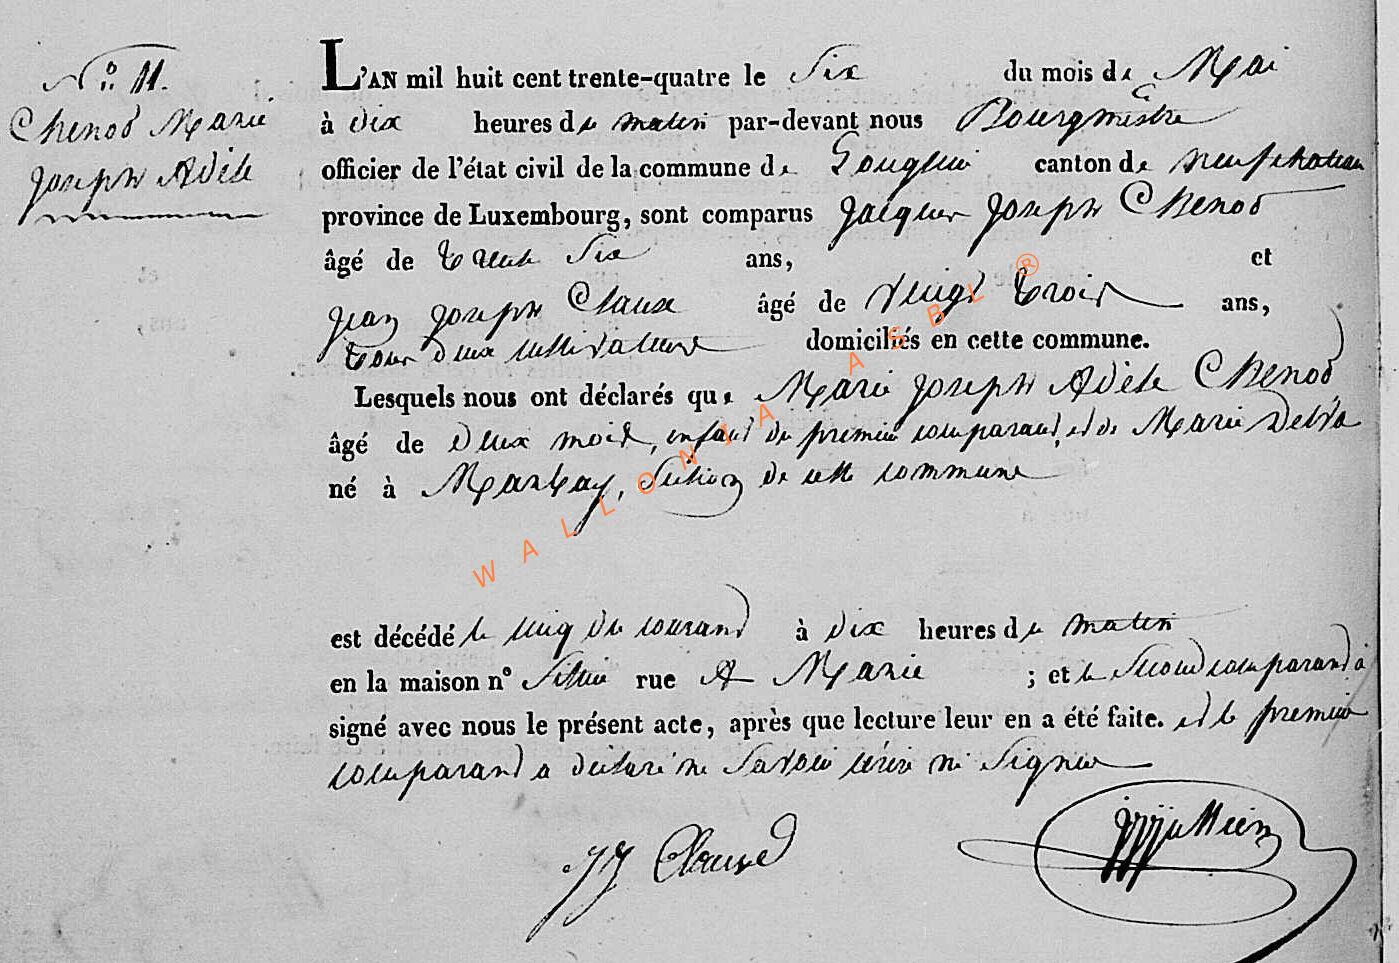 N.o 11.
Chenod Marie
Joseph Adèle
L'AN mil huit cent trente-quatre le Six du mois de Mai
à dix heures du matin par-devant nous Bourgmestre
officier de l'état civil de la commune de canton de neufchateau
province de Luxembourg, sont comparus Jacques Joseph Chenod
âgé de trente Six ans, et
Jean Joseph Claux âgé de vingt trois ans,
tous deux cultivateurs domiciliés en cette commune.
Lesquels nous ont déclarés que Marie Joseph Adèle Chenod
âgé de deux mois, enfant du premier comparant, et de Marie
né à Marbay, Section de cette commune
est décédé le cinq du courant à dix heures du matin
en la maison n° rue A Marie ; et le Second comparant a
signé avec nous le présent acte, après que lecture leur en a été faite. et le premier
comparant a déclaré ne Savoir écrire ni Signer
JJ Clause
WALLONIA ASBL ®